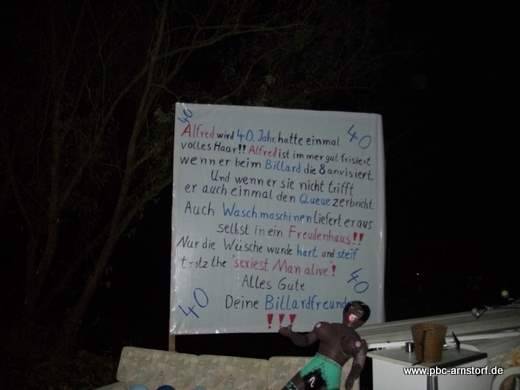 40
40
Alfred wird 40. Jahr, hatte einmal
volles Haar!! Alfred ist immer gut frisiert
wenn er beim Billard die 8 anvisiert
Und wenn er sie nicht trifft
er auch einmal den Queue zerbricht
Auch Waschmaschinen liefert er aus
selbst in ein Freudenhaus!!
Nur die Wäsche wurde hart und steif
trotz the "sexiest Man alive"!
Alles Gute
40
40
Deine Billardfreunde
!!!
www.pbc-arnstorf.de